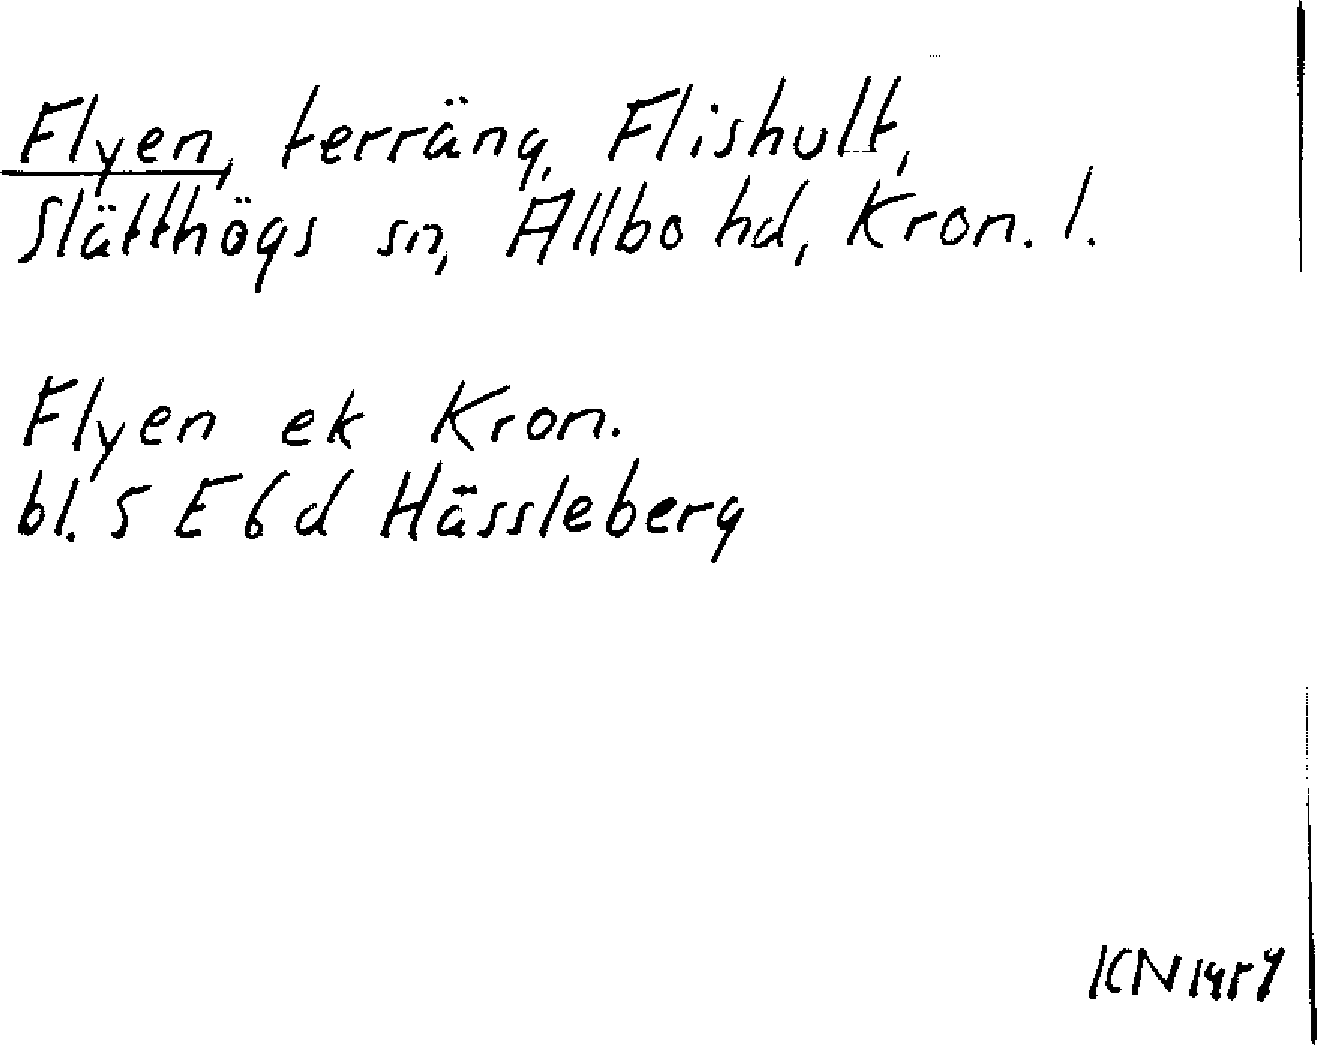 Flyen, terräng, Flishult,
Slätthögs sn, Allbo hd, Kron. l.
Flyen ek Kron.
bl. 5 E 6 d Hässleberg
KN 1959